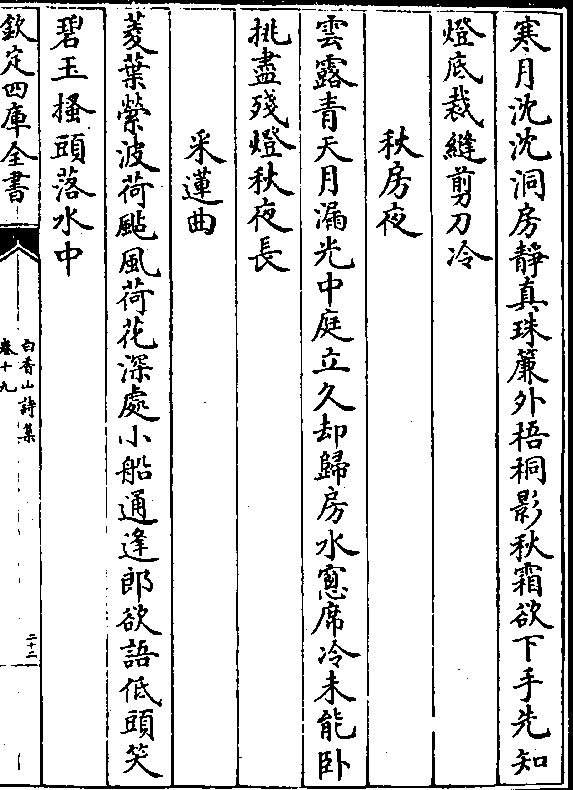 寒月沈沈洞房静真珠簾外梧桐影秋霜欲下手先知
燈底裁縫剪刀冷
秋房夜
雲露青天月漏光中庭立久却歸房水窓席冷未能卧
挑盡殘燈秋夜長
采蓮曲
菱葉縈波荷颭風荷花深處小船通逢郎欲語低頭笑
碧玉搔頭落水中
欽定四庫全書
白香山詩集
卷十九
二十二